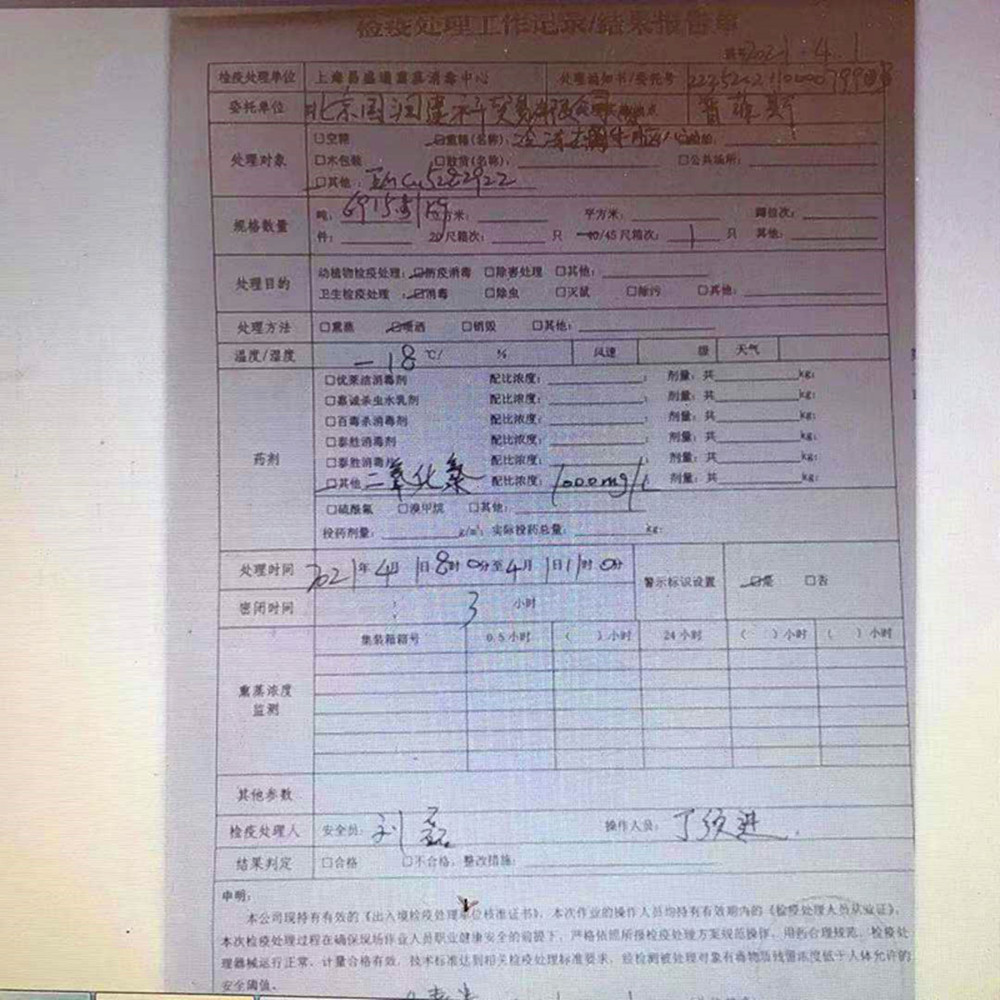 检疫处理工作记录/结果报告单
2021.4.1
检疫处理单位 上海易盛通熏蒸消毒中心 处理通知书/委托号
委托单位 北京国润 贸易有限公司 点 普菲斯
处理对象 □空箱 □重箱(名称):
□木包装 □散货(名称): □公共场所:
□其他:
规格数量 吨: 平方米: 蹲位次:
件: 20尺箱次: 只 40/45尺箱次: 1 只 其他:
处理目的 动植物检疫处理: □防疫消毒 □除害处理 □其他:
卫生检疫处理 : □消毒 □除虫 □灭鼠 □除污 □其他:
处理方法 □熏蒸 □喷洒 □销毁 □其他:
温度/湿度 -18 ℃/ % 风速 级 天气
药剂 □优莱洁消毒剂 配比浓度: ; 剂量:共 kg;
□嘉诚杀虫水乳剂 配比浓度: ; 剂量:共 kg;
□百毒杀消毒剂 配比浓度: ; 剂量:共 kg;
□泰胜消毒剂 配比浓度: ; 剂量:共 kg;
□泰胜消毒片 配比浓度: ; 剂量:共 kg;
□其他 二氧化氯 配比浓度: 1000mg/L 剂量:共 kg;
□硫酰氟 □溴甲烷 □其他:
投药剂量: g/m³; 实际投药总量: kg;
处理时间 2021年4月1日8时0分至4月1日11时0分 警示标识设置 □是 □否
密闭时间 3 小时
集装箱箱号 0.5小时 ( )小时 24小时 ( )小时 ( )小时
熏蒸浓度
监测
其他参数
检疫处理人 安全员: 刘磊 操作人员: 丁须进
结果判定 □合格 □不合格,整改措施:
申明:
本公司现持有有效的《出入境检疫处理单位核准证书》,本次作业的操作人员均持有有效期内的《检疫处理人员从业证》,
本次检疫处理过程在确保现场作业人员职业健康安全的前提下,严格依照所报检疫处理方案规范操作,用药合理规范,检疫处
理器械运行正常、计量合格有效,技术标准达到相关检疫处理标准要求,经检测被处理对象有毒物质残留浓度低于人体允许的
安全阈值。